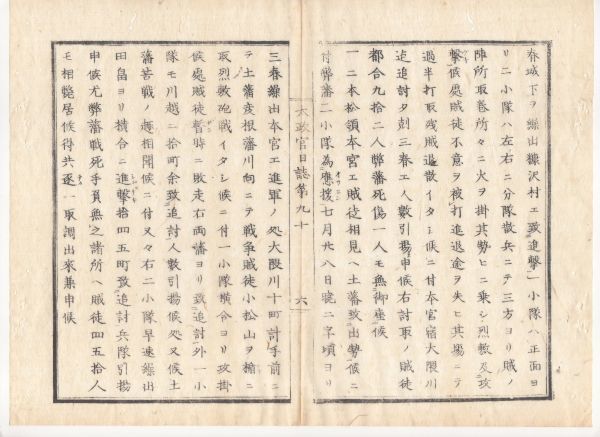 春城下ヲ繰出糠沢村エ致進撃一小隊ハ正面ヨ
リ二小隊ハ左右ニ分隊散兵ニテ三方ヨリ賊ノ
陣所取巻所々ニ火ヲ掛其勢ヒニ乗シ烈敷及攻
撃候處賊徒不意ヲ被打進退途ヲ失ヒ其場ニテ
過半打取残賊退散イタシ候ニ付本宮宿大隈川
迄追討夕刻三春エ人數引揚申候右討取ノ賊徒
都合九拾二人弊藩死傷一人モ無御座候
一二本松領本宮エ賊徒相見ヘ土藩致出勢候ニ
付弊藩二小隊為應援七月廿八日暁二字頃ヨリ
太政官日誌第九十
六
三春繰出本宮エ進軍ノ処大隈川十町計手前ニ
テ土藩彦根藩川向ニテ戦争賊徒小松山ヲ楯ニ
取烈敷砲戦イタシ候ニ付一小隊横合ヨリ攻掛
候處賊徒暫時ニ敗走右両藩ヨリ致追討外一小
隊モ川越二拾町余致追討人數引揚候処又候土
藩苦戦ノ趣相聞候ニ付又々右二小隊早速繰出
田畠ヨリ横合ニ進撃拾四五町致追討兵隊引揚
申候尤弊藩戦死手負無之諸所ヘ賊徒四五拾人
モ相斃居候得共逐一取調出來兼申候